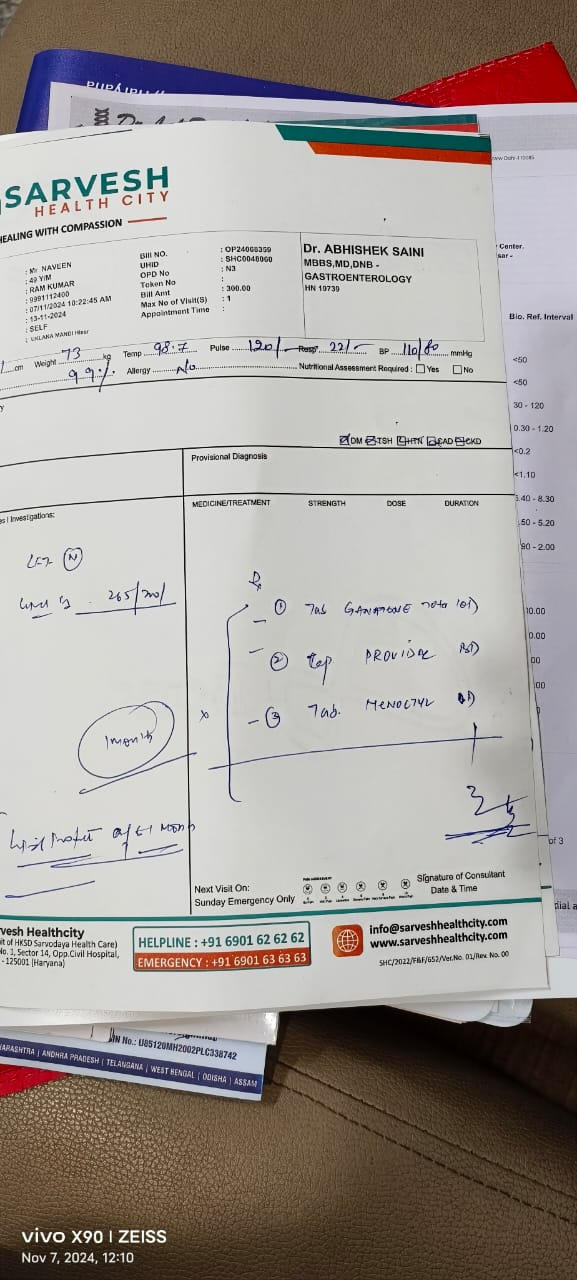 SARVESH
HEALTH CITY
HEALING WITH COMPASSION
: Mr NAVEEN
: 49 Y/M
: RAM KUMAR
: 9991112400
: 07/11/2024 10:22:45 AM
: 13-11-2024
: SELF
: UKLANA MANDI Hisar
Bill NO. : OP24068359
UHID : SHC0048060
OPD No : N3
Token No :
Bill Amt : 300.00
Max No of Visit(S) : 1
Appointment Time :
Dr. ABHISHEK SAINI
MBBS,MD,DNB -
GASTROENTEROLOGY
HN 19739
cm Weight 73 kg Temp 98.7 Pulse 120/ Resp 22/- BP 110/80 mmHg
99% Allergy No Nutritional Assessment Required : Yes No
DM TSH HTN CAD CKD
Provisional Diagnosis
MEDICINE/TREATMENT STRENGTH DOSE DURATION
s / Investigations:
N
265/
1 month
Rx
1 Tab
2 Cap BD
3 Tab.
Next Visit On:
Sunday Emergency Only
Signature of Consultant
Date & Time
vesh Healthcity
it of HKSD Sarvodaya Health Care)
No. 1, Sector 14, Opp.Civil Hospital,
- 125001 (Haryana)
HELPLINE : +91 6901 62 62 62
EMERGENCY : +91 6901 63 63 63
info@sarveshhealthcity.com
www.sarveshhealthcity.com
SHC/2022/F&F/652/Ver.No. 01/Rev. No. 00
Center.
sar -
Bio. Ref. Interval
<50
<50
30 - 120
0.30 - 1.20
<0.2
<1.10
6.40 - 8.30
.50 - 5.20
90 - 2.00
10.00
0.00
00
00
of 3
dial a
IN No.: U85120MH2002PLC338742
ARASHTRA | ANDHRA PRADESH | TELANGANA | WEST BENGAL | ODISHA | ASSAM
vivo X90 | ZEISS
Nov 7, 2024, 12:10